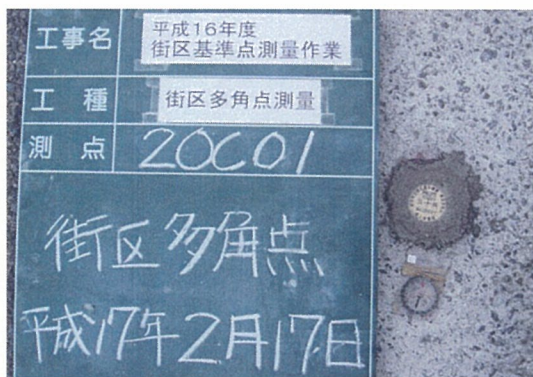 工事名
平成16年度
街区基準点測量作業
工種
街区多角点測量
測点
20C01
街区多角点
平成17年2月17日